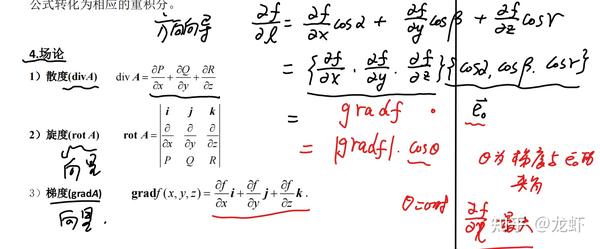 公式转化为相应的重积分。
方向向导 ∂f/∂l = ∂f/∂x cosα + ∂f/∂y cosβ + ∂f/∂z cosγ
4.场论
= {∂f/∂x · ∂f/∂y · ∂f/∂z} {cosα, cosβ, cosγ}
1）散度(divA) div A = ∂P/∂x + ∂Q/∂y + ∂R/∂z
= gradf · e₀
2）旋度(rot A) rot A = | i j k |
| ∂/∂x ∂/∂y ∂/∂z |
| P Q R |
= |gradf| · cosθ
向量
θ为梯度与e₀的
夹角
3）梯度(gradA) gradf(x, y, z) = ∂f/∂x i + ∂f/∂y j + ∂f/∂z k.
向量.
∂f/∂l 最大
知乎 @龙虾